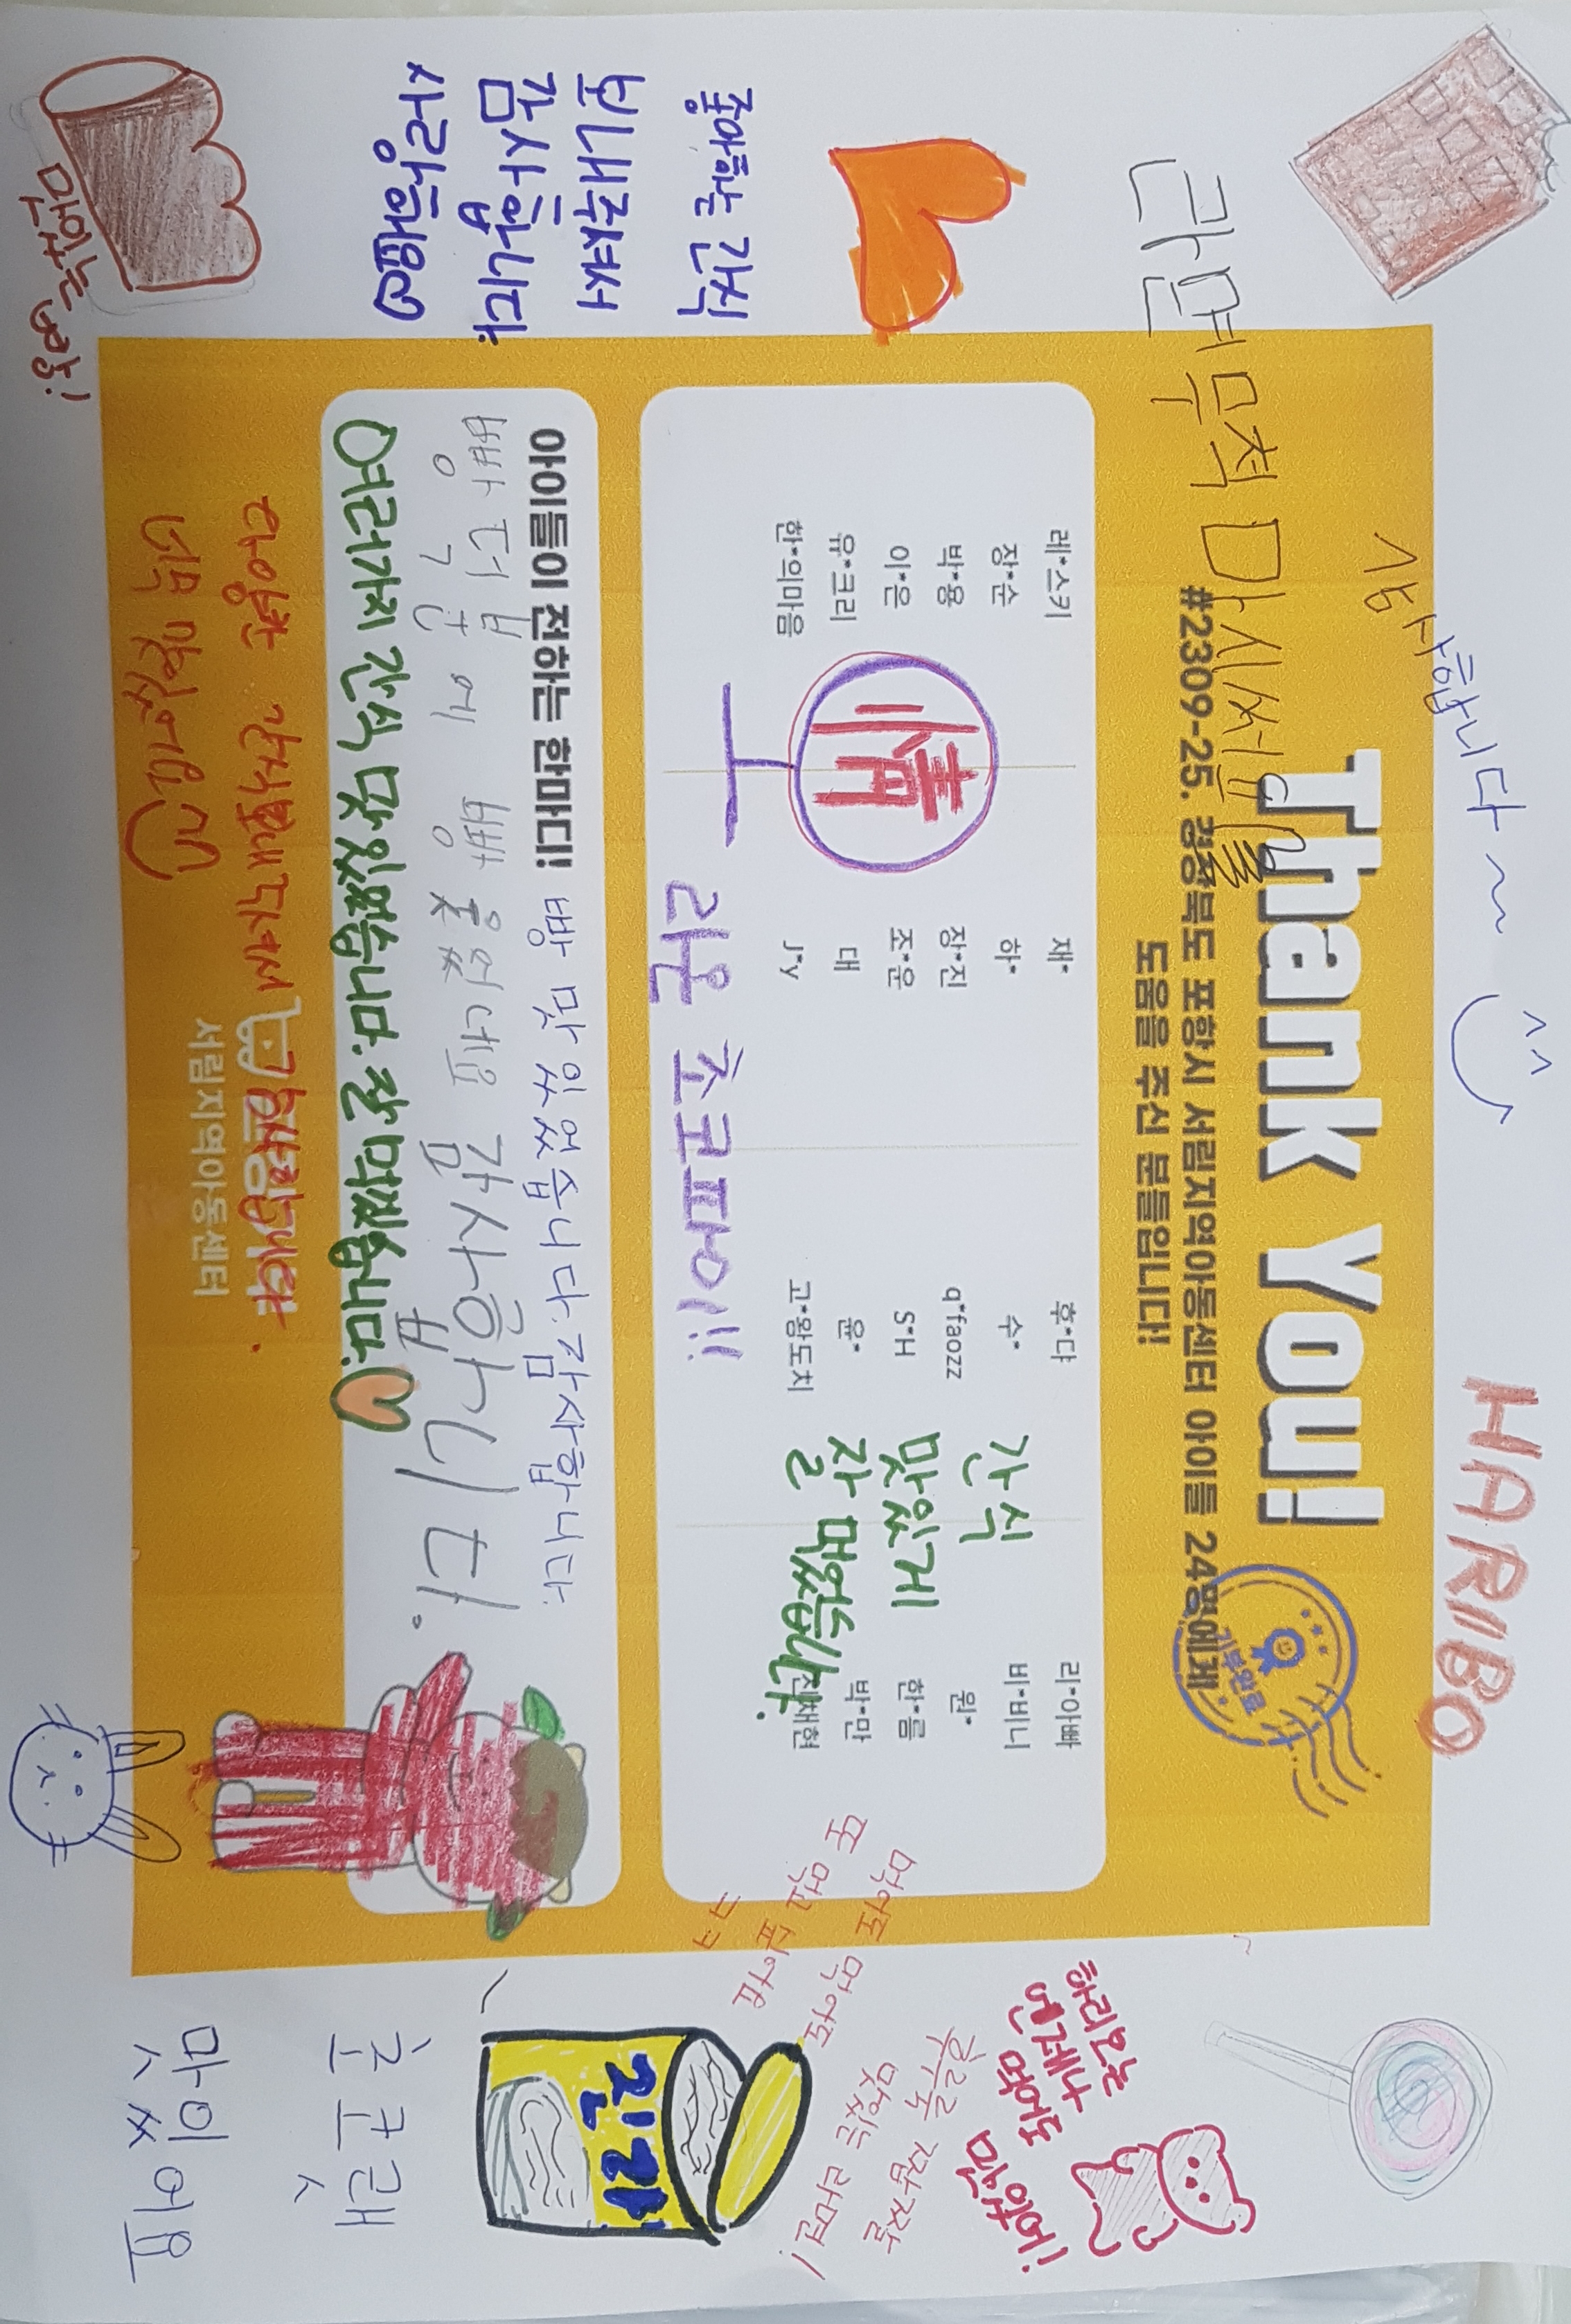 감사합니다~
^^
HARIBO
라면 무척 마시써씀
Thank You!
#2309-25. 경상북도 포항시 서림지역아동센터 아이들 24명에게
도움을 주신 분들입니다!
기부완료
레*스키
재*
후*댜
리*아빠
장*순
하*
수*
비*비니
박*용
장*진
q*faozz
원*
이*은
조*운
S*H
한*름
유*크리
대
윤*
박*만
한*의마음
J*y
고*왕도치
채현
간식
맛있게
잘 먹었습니다.
情
초코파이!!
아이들이 전하는 한마디!
빵 맛있었습니다. 감사합니다.
감사합니다.
여러가지 간식 맛있었습니다. 잘 먹었습니다.
다양한 간식 보내주셔서 감사합니다.
너무 맛있어요
서림지역아동센터
좋아하는 간식
보내주셔서
감사합니다
맛있는 빵!
하리보는
언제나
맛있어!
후루룩 짭짭
맛있는 라면!
먹어도 먹어도
또 먹고 싶어요
ㅋㅋ
진라
촌쿠랫
맛이
ㅅ있어요